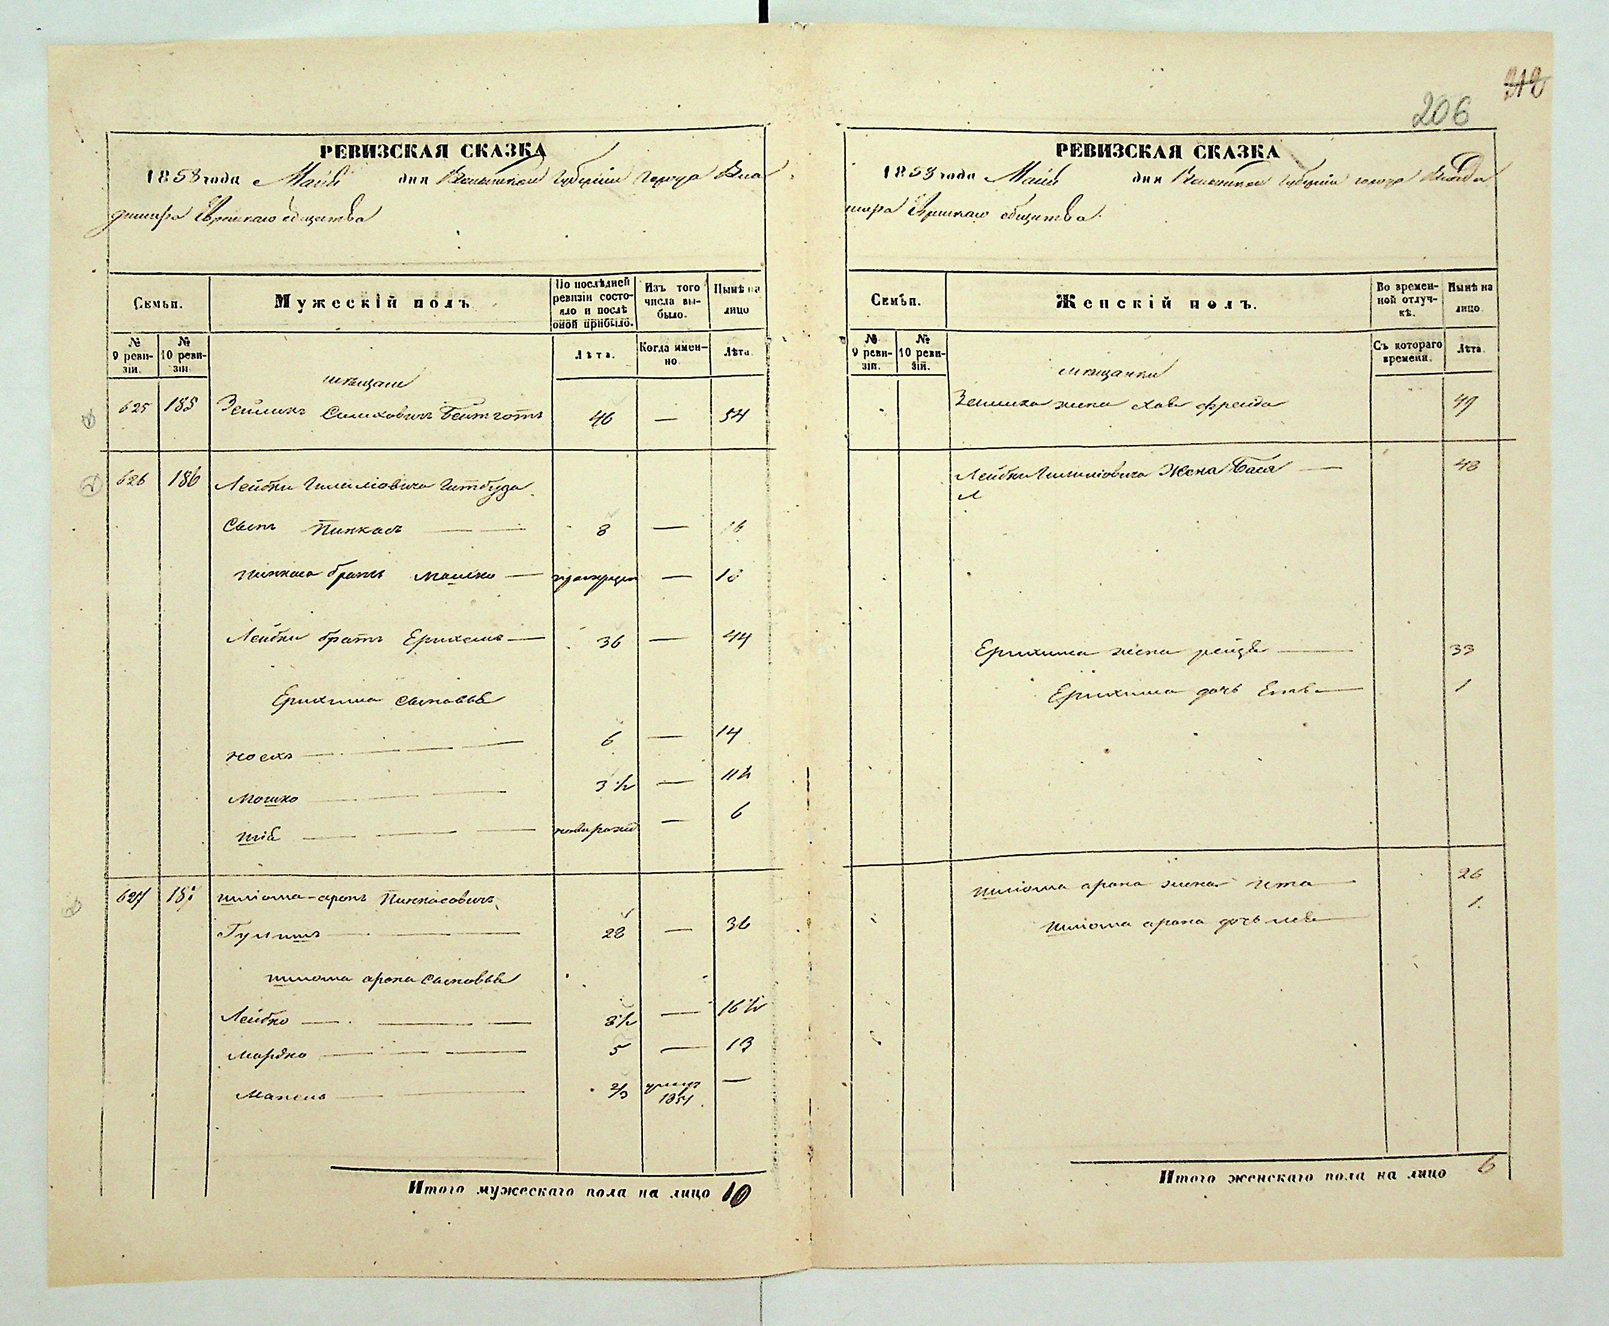 206
212
РЕВИЗСКАЯ СКАЗКА
1858 года Маія дня Волынской Губерніи города Вла
димира Еврейскаго общества
Семьи.
Мужескій полъ.
По послѣдней ревизіи состояло и послѣ оной прибыло.
Изъ того числа выбыло.
Нынѣ на лицо
№ 9 ревизіи.
№ 10 ревизіи
Лѣта.
Когда именно.
Лѣта.
мѣщане
625 185 Зейликъ 46 — 54
626 186 Лейбки
Сынъ Пинкасъ 8 —
Пинкаса братъ Мошко — — 18
Лейбки братъ Ерихемъ — 36 — 44
Ерихима сыновья
Іосъ 6 — 14
Мошко 3½ — 11½
6
627 187 Шліома-аронъ Пинкасовичъ
28 — 36
Шліома арона сыновья
Лейбко 8½ — 16½
Мордко 5 — 13
Манель 2/3 умеръ 1851 —
Итого мужескаго пола на лицо 10
РЕВИЗСКАЯ СКАЗКА
1858 года Маія дня Волынской Губерніи города Влади
мира Еврейскаго общества.
Семьи.
Женскій полъ.
Во временной отлучкѣ.
Нынѣ на лицо.
№ 9 ревизіи.
№ 10 ревизіи.
Съ котораго времени.
Лѣта.
мѣщанки
Зейлика жена Хава Фрейда 49
Лейбки жена Бася — 48
Ерихима жена Рейзя 33
Ерихима дочь 1
Шліома арона жена Ита 26
Шліома арона дочь 1
Итого женскаго пола на лицо 6